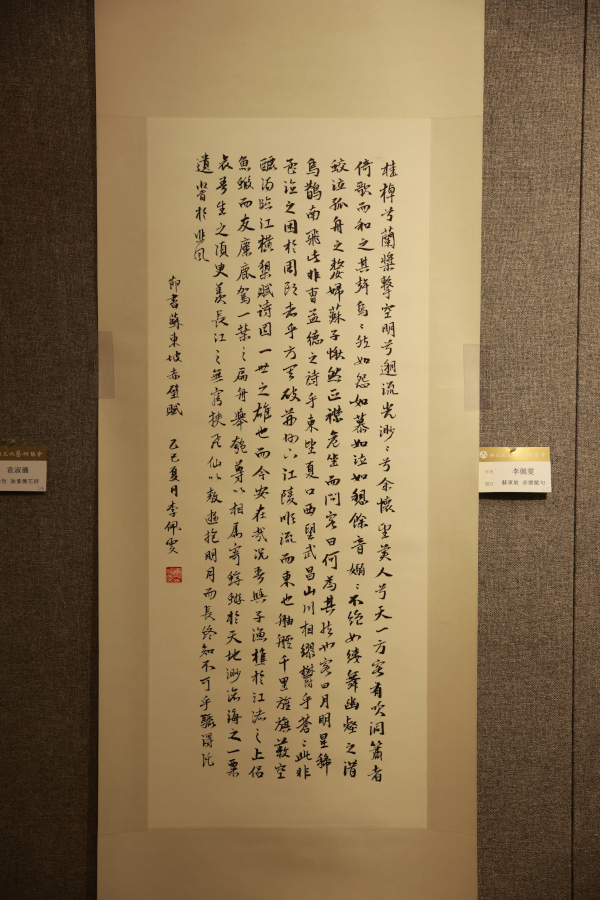 桂棹兮蘭槳擊空明兮遡流光渺〻兮余懷望美人兮天一方客有吹洞簫者
倚歌而和之其聲烏〻然如怨如慕如泣如訴餘音嫋〻不絕如縷舞幽壑之潛
蛟泣孤舟之嫠婦蘇子愀然正襟危坐而問客曰何為其然也客曰月明星稀
烏鵲南飛此非曹孟德之詩乎東望夏口西望武昌山川相繆鬱乎蒼〻此非
孟德之困於周郎者乎方其破荊州下江陵順流而東也舳艫千里旌旗蔽空
釃酒臨江橫槊賦詩固一世之雄也而今安在哉況吾與子漁樵於江渚之上侶
魚蝦而友麋鹿駕一葉之扁舟舉匏尊以相屬寄蜉蝣於天地渺滄海之一粟
哀吾生之須臾羨長江之無窮挾飛仙以遨遊抱明月而長終知不可乎驟得託
遺響於悲風
節書蘇東坡赤壁賦 乙巳夏月李佩雯
李佩雯
蘇東坡 赤壁賦句
文化藝術協會
袁淑儀